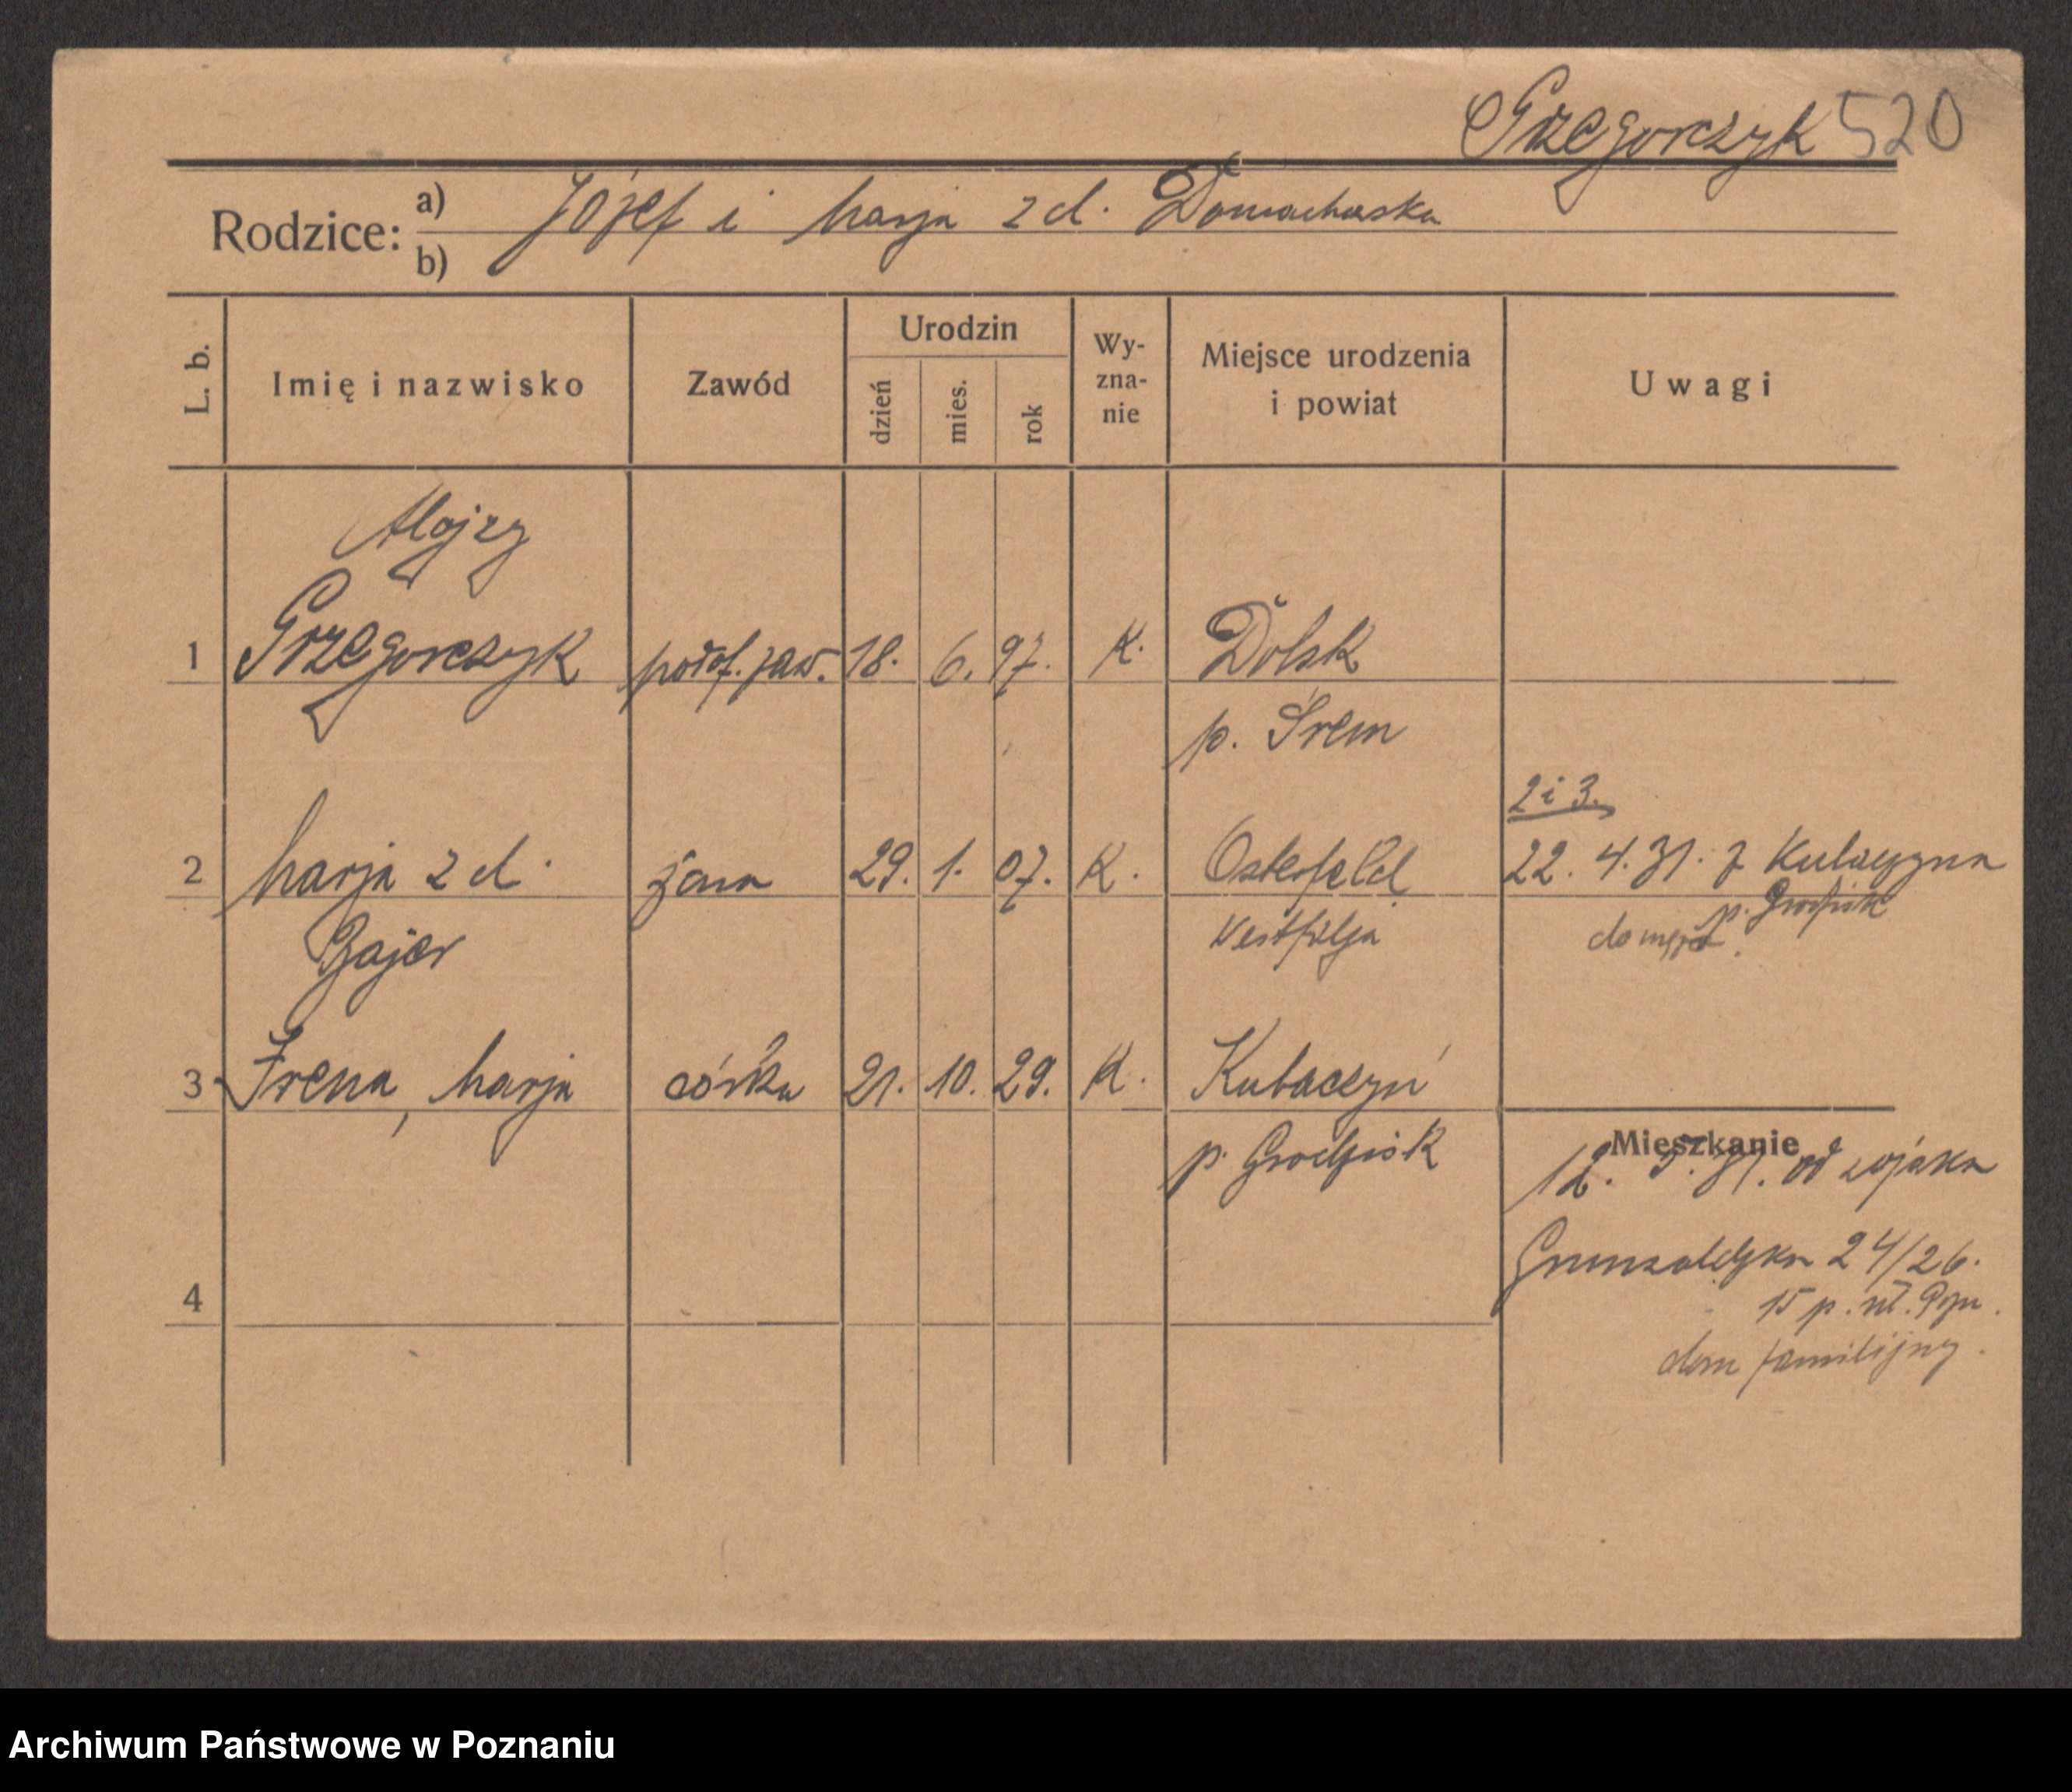 Grzegorczyk 520
Rodzice:
a) Józef i Marja z d. Domachowska
b)
L. b.
Imię i nazwisko
Zawód
Urodzin
dzień
mies.
rok
Wy-
zna-
nie
Miejsce urodzenia
i powiat
Uwagi
Alojzy
1 Grzegorczyk podof. zaw. 18. 6. 97. K. Dolsk
p. Śrem
2 i 3.
2 Marja z d. żona 29. 1. 07. K. Osterfeld 22. 4. 31. z Kubaczyna
p. Grodzisk
Bajer Westfalja do męża.
3 Irena, Marja córka 21. 10. 29. K. Kubaczyn
Mieszkanie
p. Grodzisk 12. 31. od wojska
Grunwaldzka 24/26.
4
15 p. uł. Pzn.
dom familijny.
Archiwum Państwowe w Poznaniu